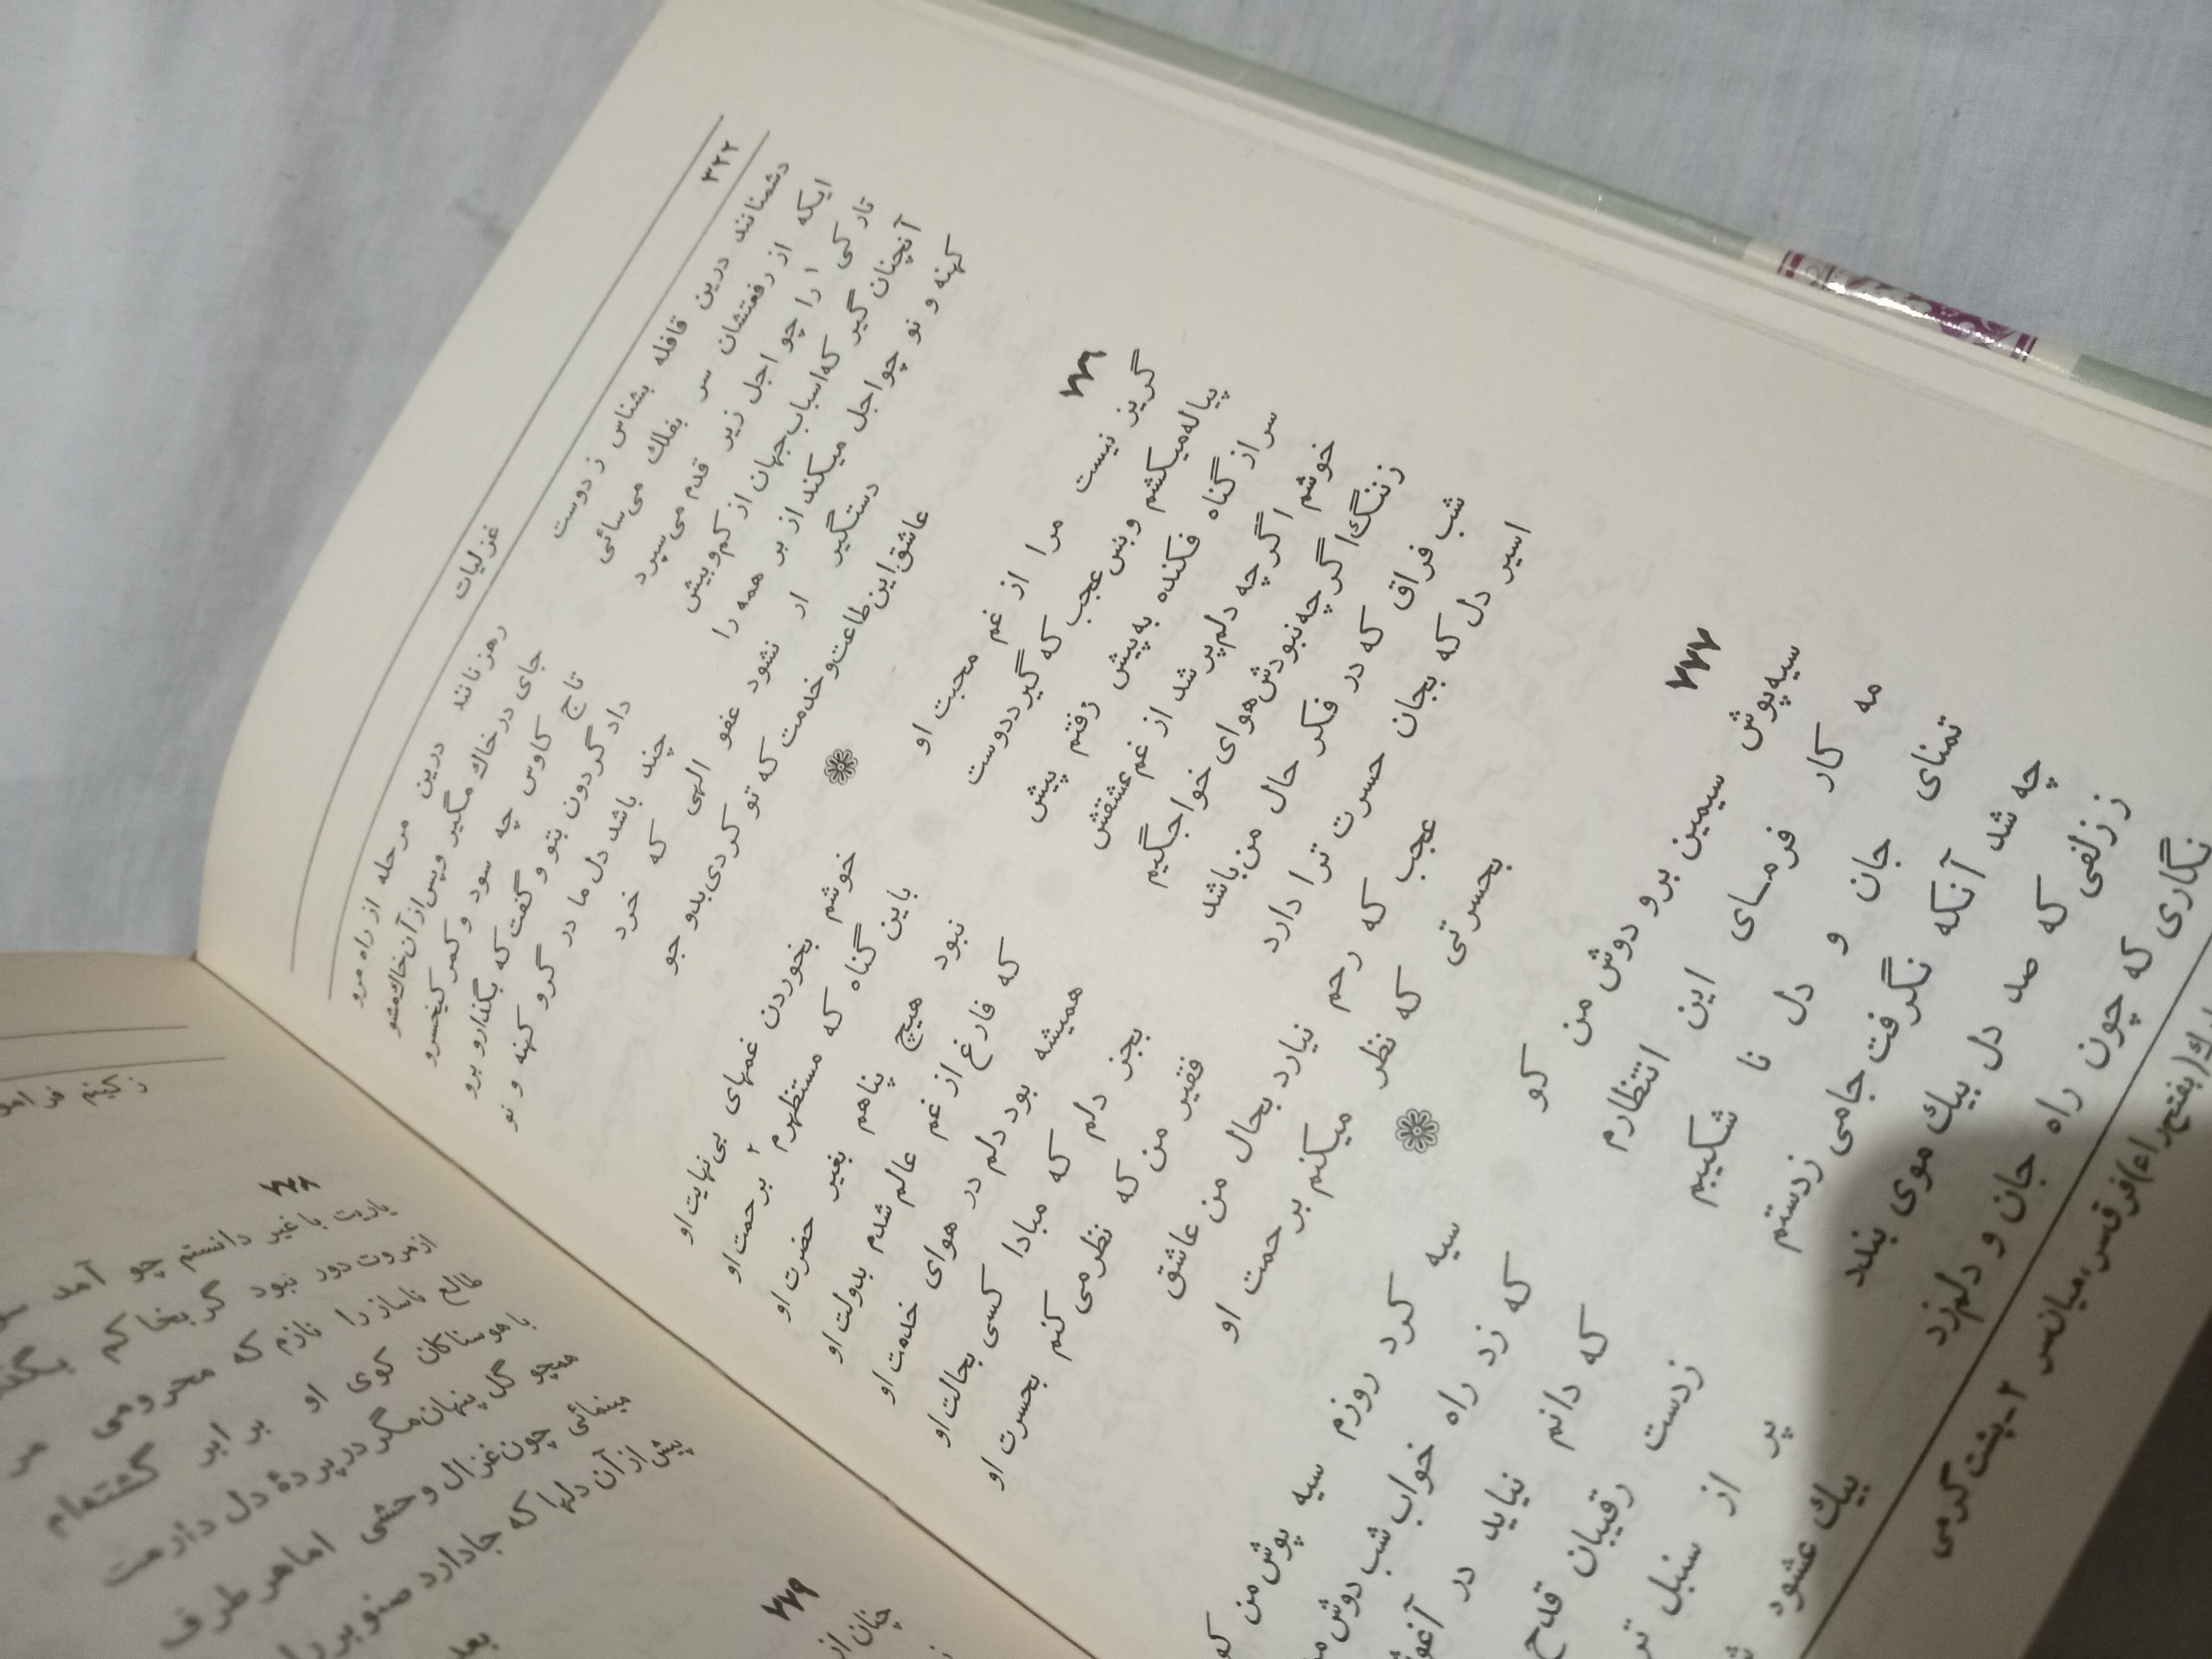 ۳۲۲ غزلیات
دشمنانند درین قافله بشناس ز دوست رهزنانند درین مرحله از راه مرو
ایکه از رفعتشان سر بفلك می‌سائی جای در خاك مگیر و پس از آن خاك مشو
تارکی ۱ را چو اجل زیر قدم می‌سپرد تاج کاوس چه سود و کمر کیخسرو
آنچنان گیر که اسباب جهان از کم و بیش داد گردون بتو و گفت که بگذار و برو
کهنه و نو چو اجل میکند از بر همه را چند باشد دل ما در گرو کهنه و نو
دستگیر ار نشود عفو الهی که خرد
عاشق این طاعت و خدمت که تو کردی بدو جو
۷۷۶
گریز نیست مرا از غم محبت او خوشم بخوردن غمهای بی‌نهایت او
پیاله میکشم و بس عجب که گیرد دوست باین گناه که مستظهرم ۲ برحمت او
سر از گناه فکنده به پیش رفتم پیش نبود هیچ پناهم بغیر حضرت او
خوشم اگر چه دلم پر شد از غم عشقش که فارغ از غم عالم شدم بدولت او
زننگ اگر چه نبودش هوای خواجگیم همیشه بود دلم در هوای خدمت او
شب فراق که در فکر حال من باشد بجز دلم که مبادا کسی بحالت او
اسیر دل که بجان حسرت ترا دارد فقیر من که نظر می کنم بحسرت او
عجب که رحم نیارد بحال من عاشق
بحسرتی که نظر میکنم برحمت او
۷۷۷
سیه‌پوش سیمین برو دوش من کو سیه کرد روزم سیه پوش من کو
مه کار فرمسای این انتظارم که زد راه خواب شب دوش
تمنای جان و دل نا شکیبم که دانم نیاید در
چه شد آنکه نگرفت جامی زدستم زدست رقیبان قدح
ززلفی که صد دل بیك موی بندد پر از سنبل
نگاری که چون راه جان و دلم زد بیك
(بفتح راء) فرق سر، میان سر ۲- پشت گرمی
۷۷۸
یاریت با غیر دانستم چو آمد
از مروت دور نبود گر بخاکم
طالع ناساز را نازم که محرومی
با هوسناکان کوی او برابر گشته‌ام
همچو گل پنهان مگر در پردهٔ دل دارمت
مینمائی چون غزال وحشی اما هر طرف
پیش از آن دلها که جا دارد صنوبر
بعد
۷۷۹
چنان از